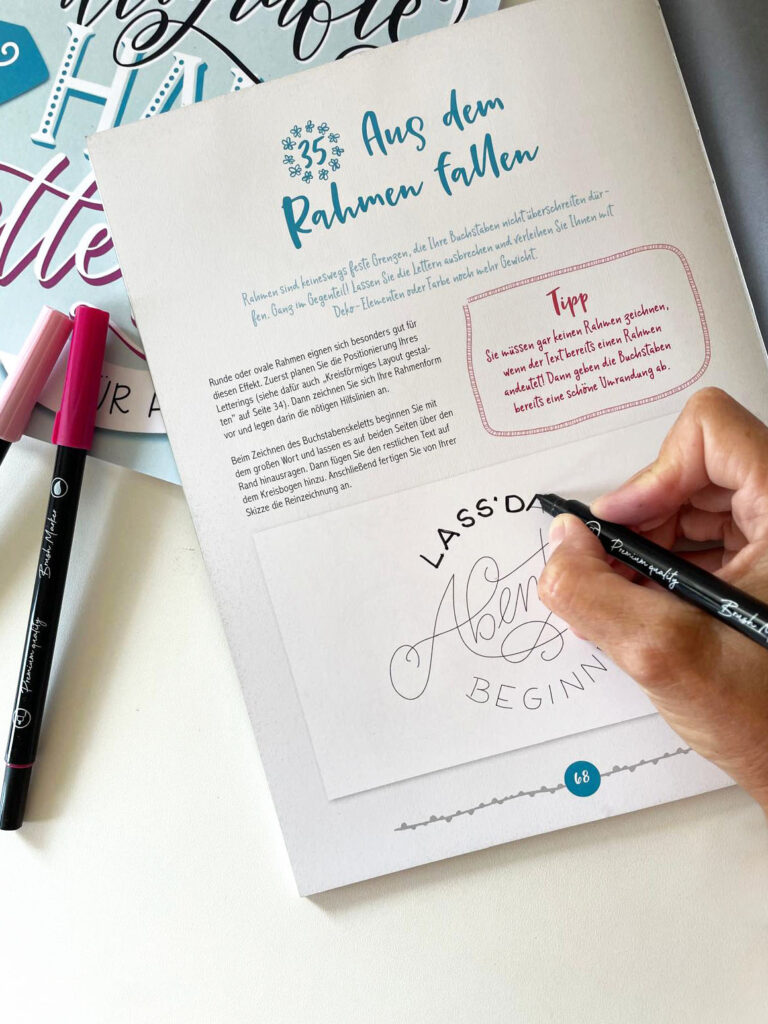 HA
35 Aus dem
Rahmen fallen
Rahmen sind keineswegs feste Grenzen, die Ihre Buchstaben nicht überschreiten dür-
fen. Ganz im Gegenteil! Lassen Sie die Lettern ausbrechen und verleihen Sie Ihnen mit
Deko-Elementen oder Farbe noch mehr Gewicht.
Runde oder ovale Rahmen eignen sich besonders gut für
diesen Effekt. Zuerst planen Sie die Positionierung Ihres
Letterings (siehe dafür auch „Kreisförmiges Layout gestal-
ten" auf Seite 34). Dann zeichnen Sie sich Ihre Rahmenform
vor und legen darin die nötigen Hilfslinien an.
Beim Zeichnen des Buchstabenskeletts beginnen Sie mit
dem großen Wort und lassen es auf beiden Seiten über den
Rand hinausragen. Dann fügen Sie den restlichen Text auf
dem Kreisbogen hinzu. Anschließend fertigen Sie von Ihrer
Skizze die Reinzeichnung an.
Tipp
Sie müssen gar keinen Rahmen zeichnen,
wenn der Text bereits einen Rahmen
andeutet! Dann geben die Buchstaben
bereits eine schöne Umrandung ab.
LASS' DA
Aben
BEGINN
68
ÜR
Brush Marker
Premium quality
Premium quality
Brush Ma